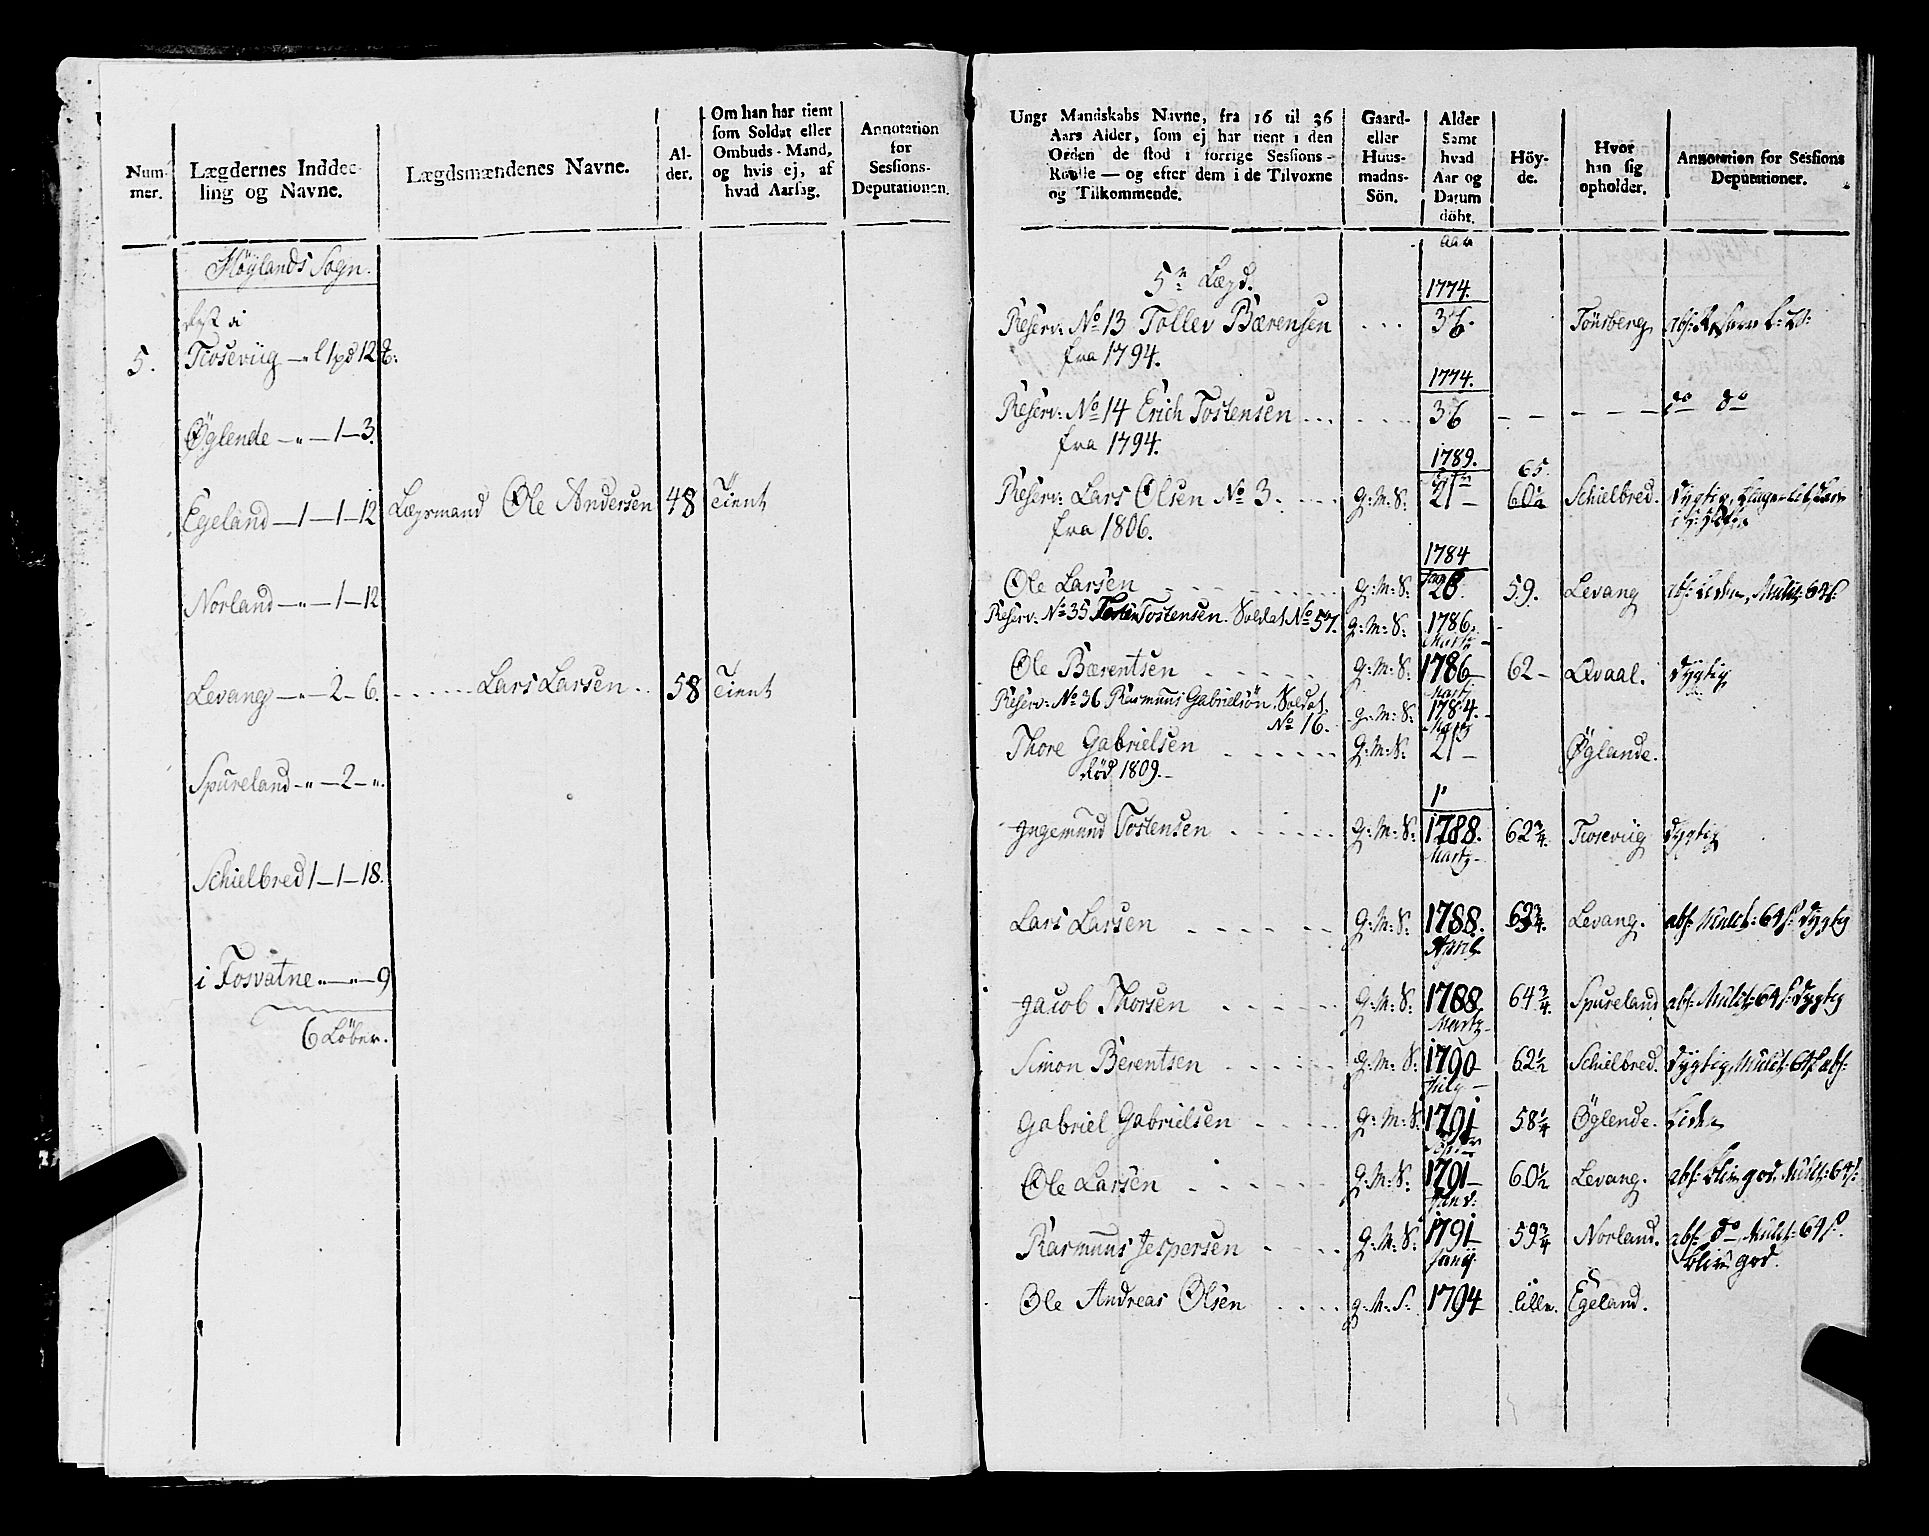 Num-
mer.
Lægdernes Inddee-
ling og Navne.
Lægdsmændenes Navne.
Al-
der.
Om han har tient
som Soldat eller
Ombuds-Mand,
og hvis ej, af
hvad Aarsag.
Annotation
for
Sessions-
Deputationen.
Høylands Sogn.
5.
Tiosevüg — " 1 pd 12
Øglende — " — 1 — 3.
Egeland — 1 — 1 — 12 Lægsmand Ole Andersen 48 Tient
Norland — " — 1 — 12
Levang — " — 2 — 6. Lars Larsen 58 Tient
Spureland — " — 2 — ".
Schielbred 1 — 1 — 18.
i Fosvatne " — " — 9
6 Löber.
Unge Mandskabs Navne, fra 16 til 36
Aars Alder, som ej har tient i den
Orden de stod i forrige Sessions-
Roulle — og efter dem i de Tilvoxne
og Tilkommende.
Gaard-
eller
Huus-
mands-
Sön.
Alder
Samt
hvad
Aar og
Datum
döbt.
Höy-
de.
Hvor
han sig
opholder.
Annotation for Sessions
Deputationer.
aar
5te Lægd.
1774.
Reserv: No 13 Tollev Bærensen 36. Tönsberg
fra 1794.
1774.
Reserv: No 14 Erich Tostensen 36 do do
fra 1794.
1789. 65
Reserv: Lars Olsen No 3. G:M:S: 21 — 60 1/2 Schielbred. dygtig
fra 1806.
1784
Ole Larsen G:M:S: 26. 59. Levang Mulct: 64 s:
Reserv: No 35 Tostensen. Soldat No 57. G:M:S: 1786.
Martz
Ole Bærentsen G:M:S: 1786 62 — Qvaal. dygtig
Martz
Reserv: No 36 Rasmuus Gabrielsön, Soldat
No 16. G:M:S: 1784.
Thore Gabrielsen G:M:S: 21 — Øglande.
död 1809.
Ingemund Tostensen G:M:S: 1788. 62 3/4. Tiosevüg dygtig
Martz
Lars Larsen G:M:S: 1788. 63 3/4. Levang. abs: Mulct: 64 s: dygtig
April
Jacob Thorsen G:M:S: 1788 64 3/4. Spureland abs: Mulct: 64 s: dygtig
Martz
Simon Berentsen G:M:S: 1790 62 1/2 Schielbred. dygtig, Mulct: 64 s abs:
July
Gabriel Gabrielsen G:M:S: 1791 58 1/4 Øglende. Liden
Ole Larsen G:M:S: 1791 60 1/2 Levang. abs: bliv god, Mulct: 64 s:
Janv:
Rasmuus Jespersen G:M:S: 1791 59 3/4 Norland. abs: do Mulct: 64 s.
bliv god.
Ole Andreas Olsen G:M:S: 1794 lille. Egeland.